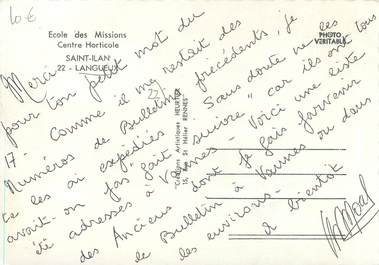 10 €
Ecole des Missions
Centre Horticole
SAINT-ILAN
22 - LANGUEUX
PHOTO
VERITABLE
"Créations Artistiques" HEURTIER
15, Rue St Hélier RENNES
22)
Merci pour ton petit mot du
17 - Comme il me restait des
Numéros de Bulletins précédents, je
te les ai expédiés. Sans doute ne les
avait-on pas fait "suivre" car ils ont tous
été adressés à Vannes - Voici une liste
des Anciens dont je fais parvenir
le Bulletin à Vannes ou dans
les environs -
à bientôt